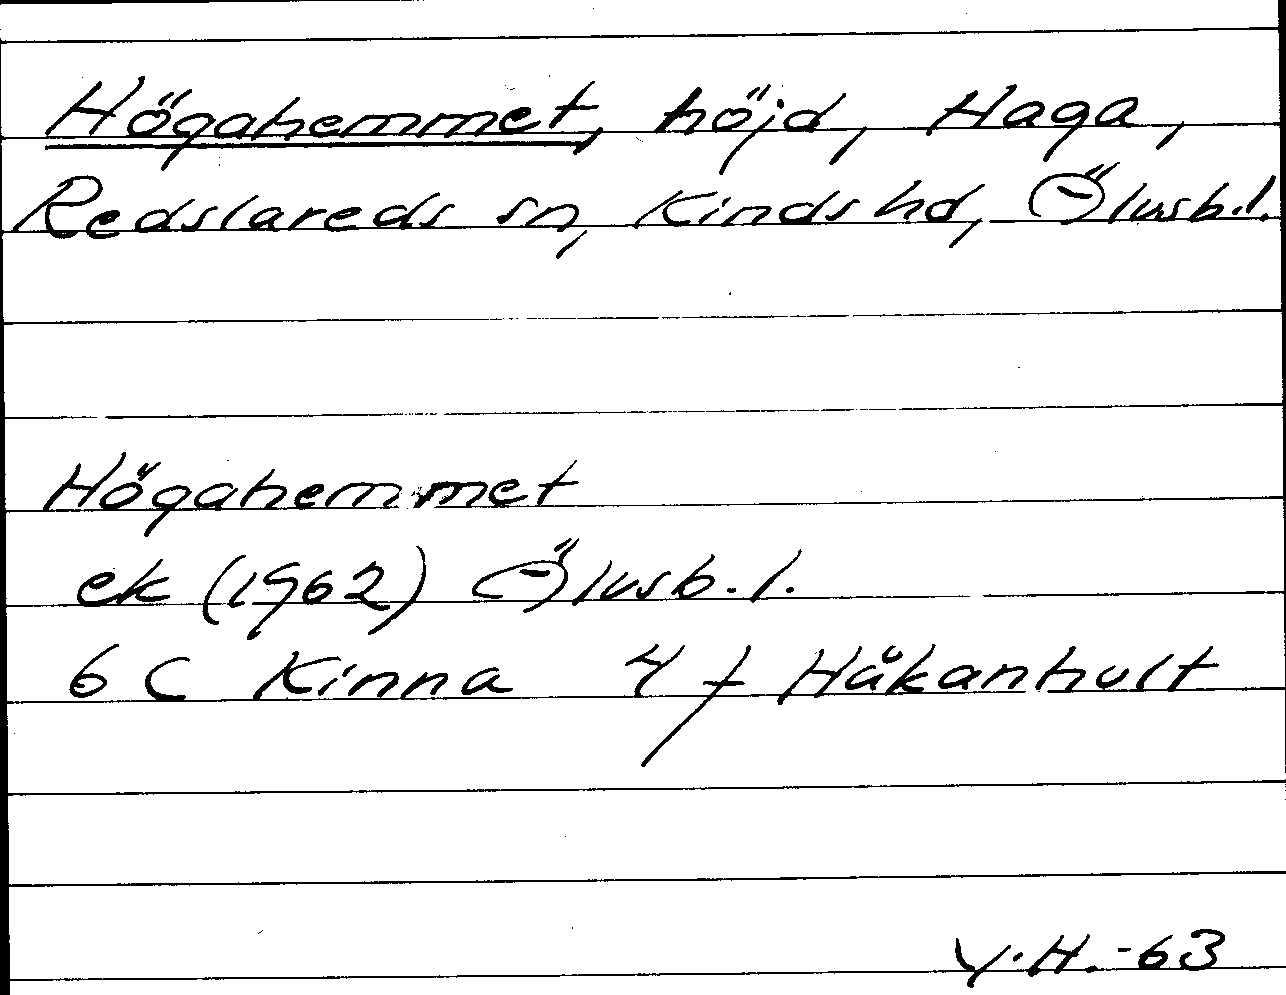 Högahemmet, höjd, Haga,
Redslareds sn, Kinds hd, Älvsb.l.
Högahemmet
ek (1962) Älvsb.l.
6 C Kinna 4 f Håkanhult
V.H.-63